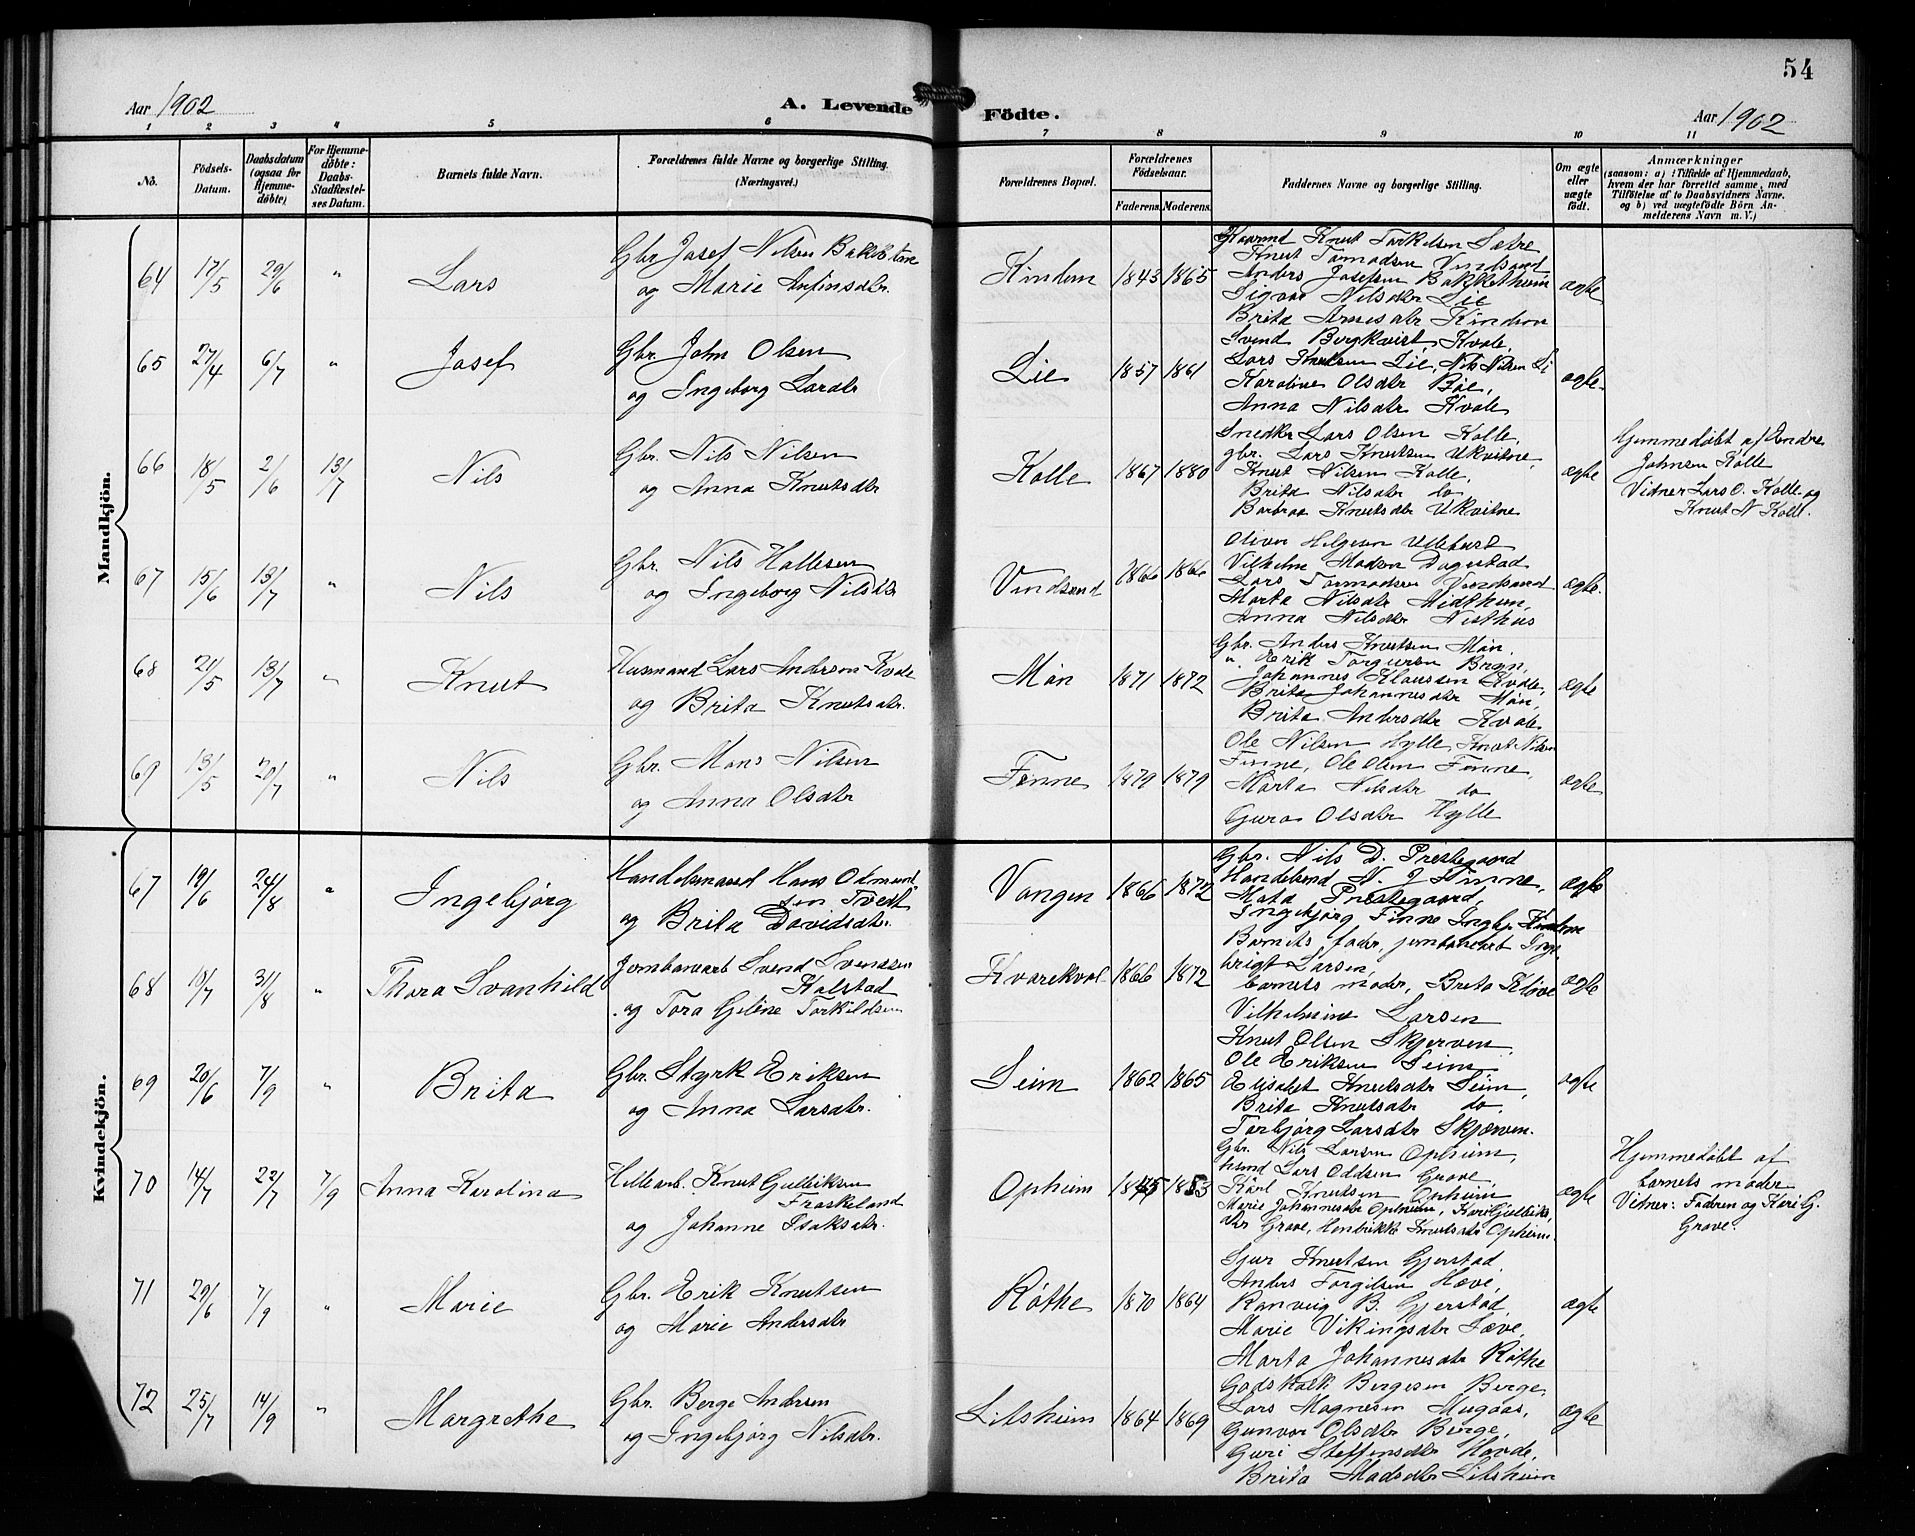 54
Aar 1902
A. Levende Födte.
Aar 1902
1 2 3 4 5 6 7 8 9 10 11
No.
Födsels-
Datum.
Daabsdatum
(ogsaa for
Hjemme-
døbte)
For Hjemme-
døbte:
Daabs-
Stadfæstel-
ses Datum.
Barnets fulde Navn.
Forældrenes fulde Navne og borgerlige Stilling.
(Næringsvei.)
Forældrenes Bopæl.
Forældrenes
Födselsaar.
Faderens.
Moderens.
Faddernes Navne og borgerlige Stilling.
Om ægte
eller
uægte
født.
Anmærkninger
(saasom: a) i Tilfælde af Hjemmedaab,
hvem der har forrettet samme, med
Tilföielse af to Daabsvidners Navne.
og b) ved uægtefödte Börn An-
melderens Navn m. V.)
Mandkjön.
64 17/5 29/6 " Lars
Gbr Josef Nilsen
og Marie Anfinsdtr.
Kindem 1843 1865
Gaarmd Knut Torkelsen Sætre
Knut Tormodsen Vindsand
Anders Josefsen Bakketheim
Sigvor Nilsdtr Lie
Brita Arnesdtr Kindem
ægte
65 27/4 6/7 " Josef
Gbr. John Olsen
og Ingeborg Larsdtr
Lie 1857 1861
Svend Bergkvist, Kvale,
Lars Knutsen Lie, Nils Nilsen Li
Karoline Olsdtr Böe,
Anna Nilsdtr Kvale
ægte.
66 18/5 2/6 13/7 Nils
Gbr. Nils Nilsen
og Anna Knutsdtr
Kolle 1867 1880
Snedkr Lars Olsen Kolle,
gbr. Lars Knutsen Ukvitne,
Knut Nilsen Kolle,
Brita Nilsdtr do
Barbraa Knutsdtr Ukvitne
ægte
Hjemmedöbt af Endre
Johnsen Kolle
Vidner Lars O. Kolle og
Knut N Kolle.
67 15/6 13/7 " Nils
Gbr. Nils Hallesen
og Ingeborg Nilsdtr
Vindsand 1866 1866
Oliver Helgesen
Vilhelm Madsen Dagestad
Lars Tormodsen Vindsand
Marta Nilsdtr Midthun,
Anna Nilsdtr
ægte.
68 21/5 13/7 " Knut
Husmand Lars Anderson Kvale
og Brita Knutsdtr.
Mön 1871 1872
Gbr. Anders Knutsen Mön,
". Erik Torgersen Bryn,
Johannes Klaussen Kvale,
Brita Johannesdtr Mön,
Brita Andersdtr Kvale
ægte
69 13/5 20/7 " Nils
Gbr. Mons Nilsen
og Anna Olsdtr
Fenne 1879 1879
Ole Nilsen Hylle, Knut Nilsen
Fenne, Ole Olsen Fenne,
Marta Nilsdtr do
Guro Olsdtr Hylle
ægte
Kvindekjön.
67 19/6 24/8 " Ingebjörg
Handelsmand Hans Odmund
sen Tvedt
og Brita Davidsdtr.
Vangen 1866 1872
Gbr. Nils D. Prestegaard
Handelsmd N. J Finne,
Mata Prestegaard,
Ingebjörg Finne
ægte
68 10/7 31/8 " Thora Svanhild
Jernbanearb Svend Svendsen
Kalstad
og Tora Geline Torkildsen
Kvarekval 1866 1872
Barnets fader, jernbanearb Inge
brigt Larsen,
barnets moder, Brita Klöve
Vilhelmine Larsen
ægte
69 20/6 7/9 " Brita
Gbr. Styrk Eriksen
og Anna Larsdtr.
Seim 1862 1865
Knut Olsen Skjerven
Ole Eriksen Seim
Elisabet Knutsdtr Seim,
Brita Knutsdtr do,
Torbjörg Larsdtr Skjerven.
ægte
70 14/7 22/7 7/9 Anna Karolina
Hillearb. Knut Gulliksen
Fraskeland
og Johanne Isaksdtr.
Opheim 1845 1853
Gbr. Nils Larsen Opheim,
husmd Lars Oddsen Grave,
Karl Knutsen Opheim
Marie Johannesdtr Opheim, Kari Gulliks
dtr Grave, Henrikke Knutsdtr Opheim.
ægte
Hjemmedöbt af
barnets moder
Vidner: Faderen og Kari G.
Grave.
71 29/6 7/9 " Marie
Gbr. Erik Knutsen
og Marie Andersdtr
Röthe 1870 1864
Sjur Knutsen Gjerstad,
Anders Torgilsen Hæve,
Ranveig B. Gjerstad,
Marie Vikingsdtr Sæve,
Marta Johannesdtr Röthe
ægte
72 25/7 14/9 " Margrethe
Gbr. Berge Andersen
og Ingebjörg Nilsdtr.
Litsheim 1864 1869
Godskalk Bergesen Berge,
Lars Magnesen Mugaas,
Gunvor Olsdtr Berge,
Guri Steffensdtr Hovde,
Brita Madsdtr Litsheim
ægte